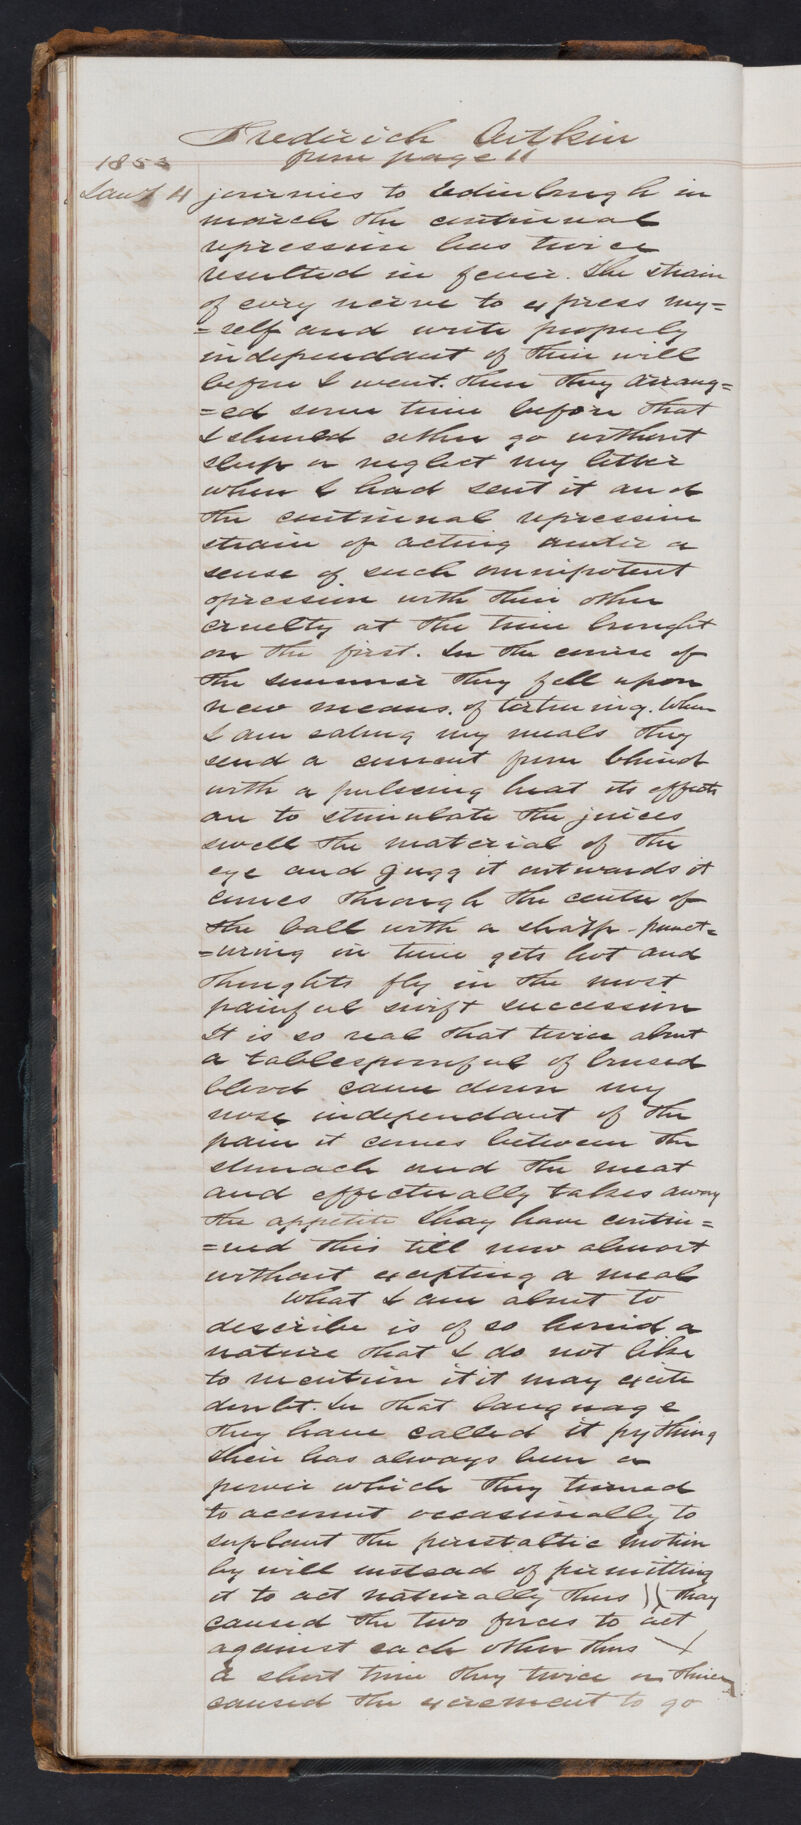 Frederick Aitkin
from page 11
1853
Jany 4 journies to Edinburgh in
march the continual
repression has twice
resulted in fever. The strain
of evry nerve to express my=
=self and write properly
independant of their will
before I went. Then they arrang=
=ed some time before that
I should either go without
sleep or neglect my letter
when I had sent it and
the continual repressive
strain of acting under a
sense of such omnipotent
opression with their other
cruelty at the time brought
on the first. In the course of
the summer they fell upon
new means of torturing. When
I am eating my meals they
send a current from behind
with a pulsing heat its effects
are to stimulate the juices
swell the material of the
eye and jugg it outwards it
comes through the center of
the ball with a sharp punct=
=uring in time gets hot and
thoughts fly in the most
painful swift succession
It is so real that twice about
a tablespoonful of brused
blood came down my
nose independant of the
pain it comes between the
stomach and the meat
and effectually takes away
the appetite thay have contin=
=ued this till now almost
without excepting a meal
What I am about to
describe is of so horrid a
nature that I do not like
to mention it it may excite
doubt. In that language
they have called it pything
their has always been a
power which they turned
to account occasionally to
suplant the peristaltic motion
by will instead of permitting
it to act naturally thus )( thay
caused the two forces to act
against each other thus X
a short time they twice or thrice
caused the excrement to go